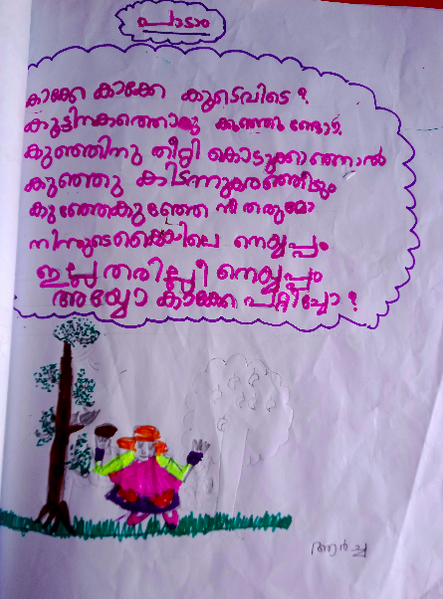 പാടാം
കാക്കേ കാക്കേ കൂടെവിടെ ?
കൂട്ടിനകത്തൊരു കുഞ്ഞുണ്ടോ ?
കുഞ്ഞിനു തീറ്റി കൊടുക്കാഞ്ഞാൽ
കുഞ്ഞു കിടന്നുകരഞ്ഞീടും
കുഞ്ഞേകുഞ്ഞേ നീ തരുമോ
നിന്നുടെകൈയിലെ നെയ്യപ്പം
ഇല്ല തരില്ലീ നെയ്യപ്പം
അയ്യോ കാക്കേ പറ്റിച്ചോ ?
ആർച്ച